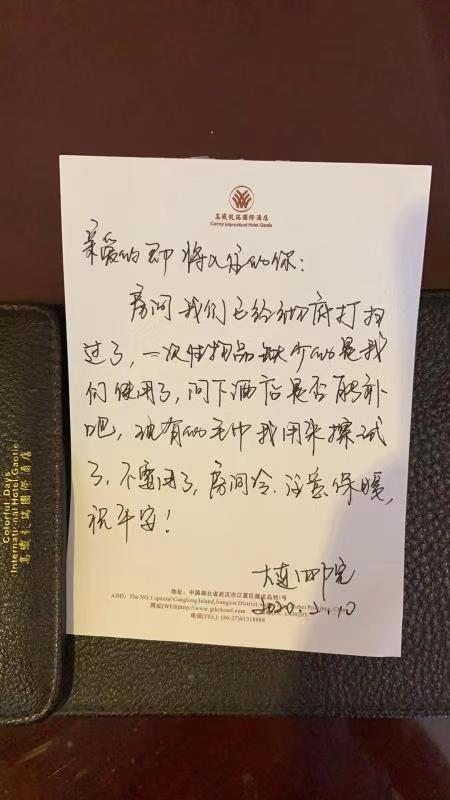 嘉鐵銳瑞國際酒店
International Hotel Gaotie
亲爱的即将入住的你：
房间我们已经彻底打扫
过了，一次性物品缺少的是我
们使用了，问下酒店是否能补
吧，现有的毛巾我用来擦试
了，不要用了，房间冷，注意保暖，
祝平安！
大连
2020.2.10
地址：中国湖北省武汉市江夏区
ADD: The NO.1 special Canglong Island, Jiangxia District,
网址(WEB)http://www.gtkrhotel.com
电话(TEL): (86-27)81318888
Colorful Days
International Hotel Gaotie
國際酒店